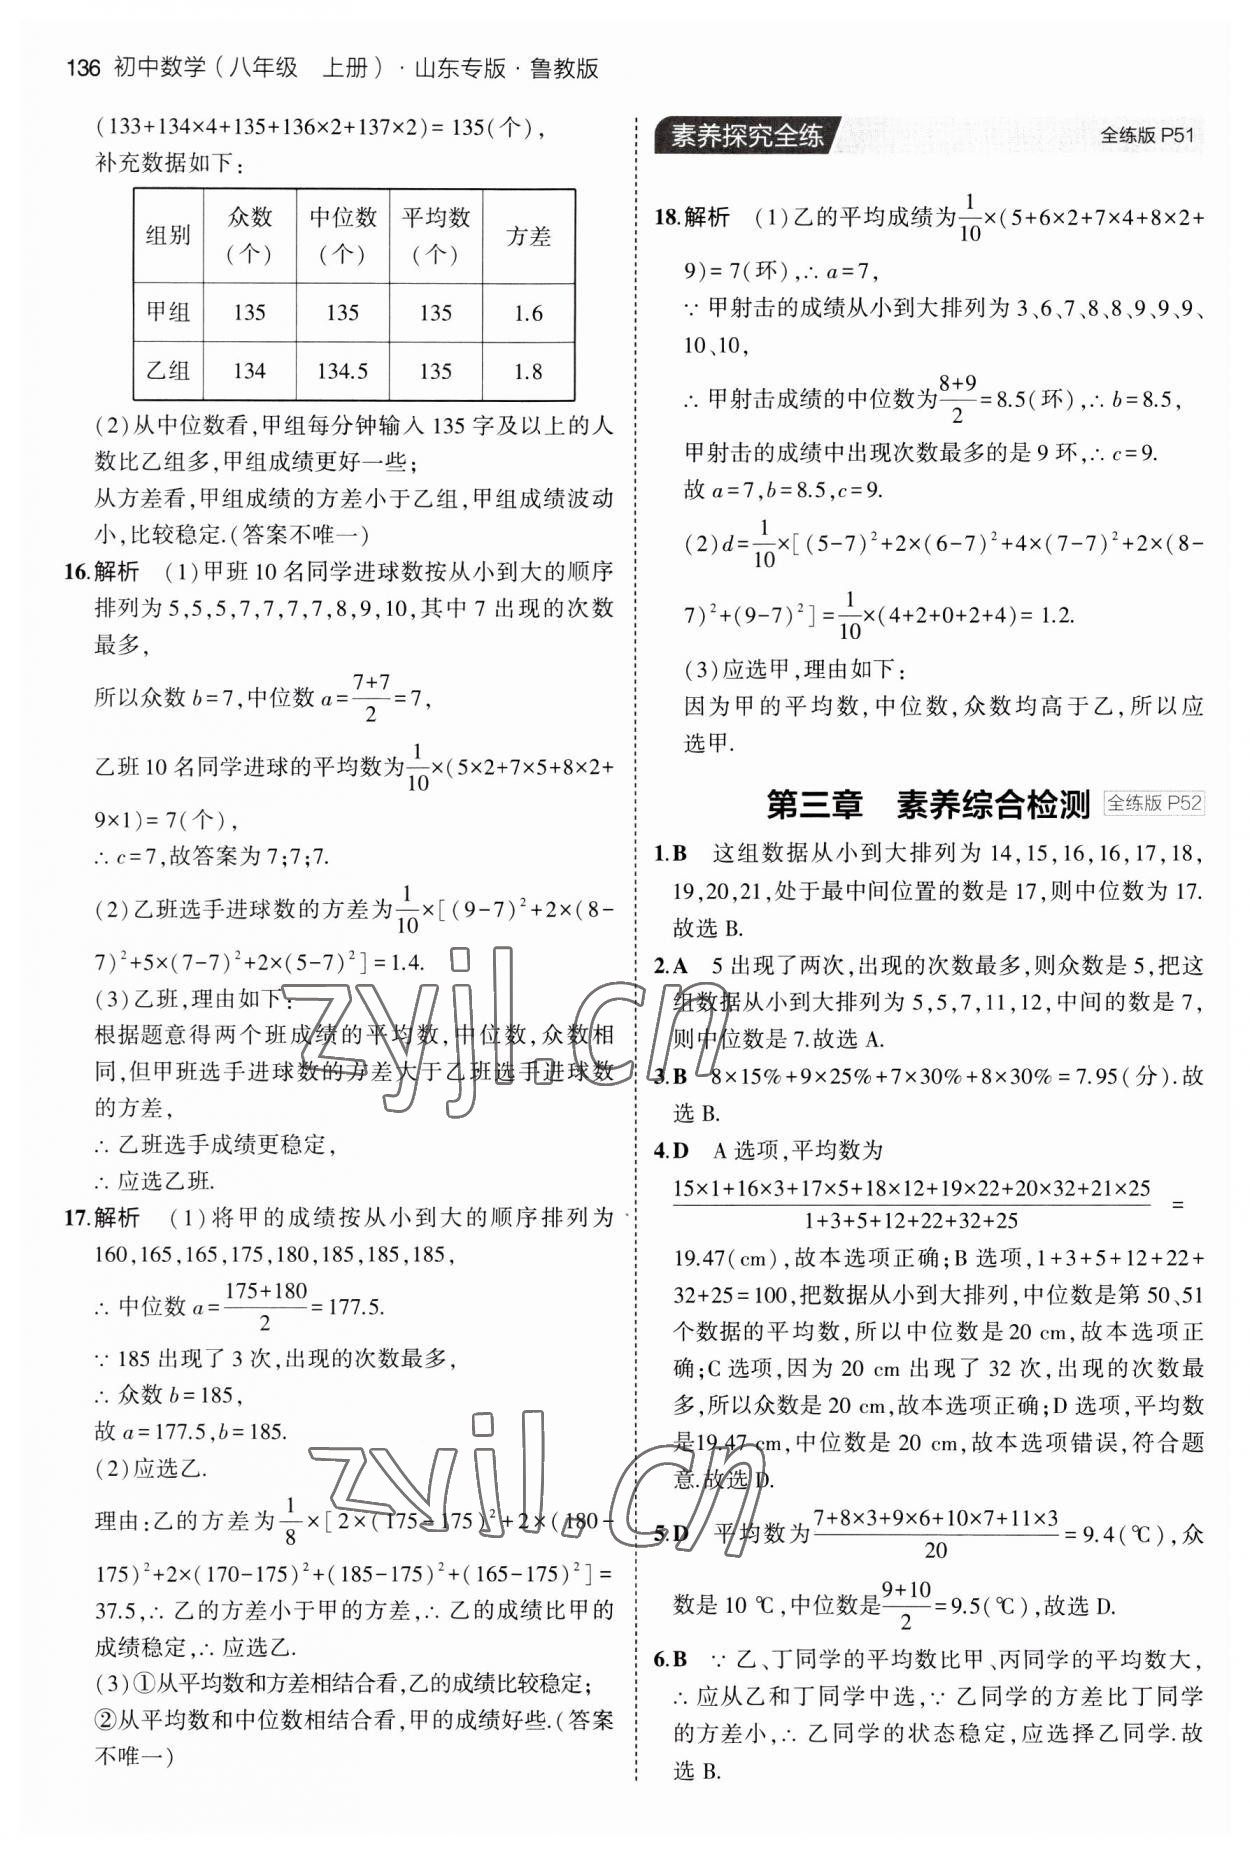 136 初中数学(八年级 上册)·山东专版·鲁教版
(133+134×4+135+136×2+137×2)=135(个),
补充数据如下:
组别 众数(个) 中位数(个) 平均数(个) 方差
甲组 135 135 135 1.6
乙组 134 134.5 135 1.8
(2)从中位数看,甲组每分钟输入 135 字及以上的人
数比乙组多,甲组成绩更好一些;
从方差看,甲组成绩的方差小于乙组,甲组成绩波动
小,比较稳定.(答案不唯一)
16.解析 (1)甲班 10 名同学进球数按从小到大的顺序
排列为 5,5,5,7,7,7,7,8,9,10,其中 7 出现的次数
最多,
所以众数 b=7,中位数 a=\frac{7+7}{2}=7,
乙班 10 名同学进球的平均数为\frac{1}{10}×(5×2+7×5+8×2+
9×1)=7(个),
∴ c=7,故答案为 7;7;7.
(2)乙班选手进球数的方差为\frac{1}{10}×[(9-7)²+2×(8-
7)²+5×(7-7)²+2×(5-7)²]=1.4.
(3)乙班,理由如下:
根据题意得两个班成绩的平均数,中位数,众数相
同,但甲班选手进球数的方差大于乙班选手进球数
的方差,
∴ 乙班选手成绩更稳定,
∴ 应选乙班.
17.解析 (1)将甲的成绩按从小到大的顺序排列为
160,165,165,175,180,185,185,185,
∴ 中位数 a=\frac{175+180}{2}=177.5.
∵ 185 出现了 3 次,出现的次数最多,
∴ 众数 b=185,
故 a=177.5,b=185.
(2)应选乙.
理由:乙的方差为\frac{1}{8}×[2×(175-175)²+2×(180-
175)²+2×(170-175)²+(185-175)²+(165-175)²]=
37.5,∴ 乙的方差小于甲的方差,∴ 乙的成绩比甲的
成绩稳定,∴ 应选乙.
(3)①从平均数和方差相结合看,乙的成绩比较稳定;
②从平均数和中位数相结合看,甲的成绩好些.(答案
不唯一)
素养探究全练 全练版 P51
18.解析 (1)乙的平均成绩为\frac{1}{10}×(5+6×2+7×4+8×2+
9)=7(环),∴ a=7,
∵ 甲射击的成绩从小到大排列为 3、6、7、8、8、9、9、9、
10、10,
∴ 甲射击成绩的中位数为\frac{8+9}{2}=8.5(环),∴ b=8.5,
甲射击的成绩中出现次数最多的是 9 环,∴ c=9.
故 a=7,b=8.5,c=9.
(2)d=\frac{1}{10}×[(5-7)²+2×(6-7)²+4×(7-7)²+2×(8-
7)²+(9-7)²]=\frac{1}{10}×(4+2+0+2+4)=1.2.
(3)应选甲,理由如下:
因为甲的平均数,中位数,众数均高于乙,所以应
选甲.
第三章 素养综合检测 全练版 P52
1.B 这组数据从小到大排列为 14,15,16,16,17,18,
19,20,21,处于最中间位置的数是 17,则中位数为 17.
故选 B.
2.A 5 出现了两次,出现的次数最多,则众数是 5,把这
组数据从小到大排列为 5,5,7,11,12,中间的数是 7,
则中位数是 7.故选 A.
3.B 8×15%+9×25%+7×30%+8×30%=7.95(分).故
选 B.
4.D A 选项,平均数为
\frac{15×1+16×3+17×5+18×12+19×22+20×32+21×25}{1+3+5+12+22+32+25} =
19.47(cm),故本选项正确;B 选项,1+3+5+12+22+
32+25=100,把数据从小到大排列,中位数是第 50、51
个数据的平均数,所以中位数是 20 cm,故本选项正
确;C 选项,因为 20 cm 出现了 32 次,出现的次数最
多,所以众数是 20 cm,故本选项正确;D 选项,平均数
是19.47 cm,中位数是 20 cm,故本选项错误,符合题
意.故选 D.
5.D 平均数为\frac{7+8×3+9×6+10×7+11×3}{20}=9.4(℃),众
数是 10 ℃,中位数是\frac{9+10}{2}=9.5(℃),故选 D.
6.B ∵ 乙、丁同学的平均数比甲、丙同学的平均数大,
∴ 应从乙和丁同学中选,∵ 乙同学的方差比丁同学
的方差小,∴ 乙同学的状态稳定,应选择乙同学.故
选 B.
zyjl.cn
zyjl.cn